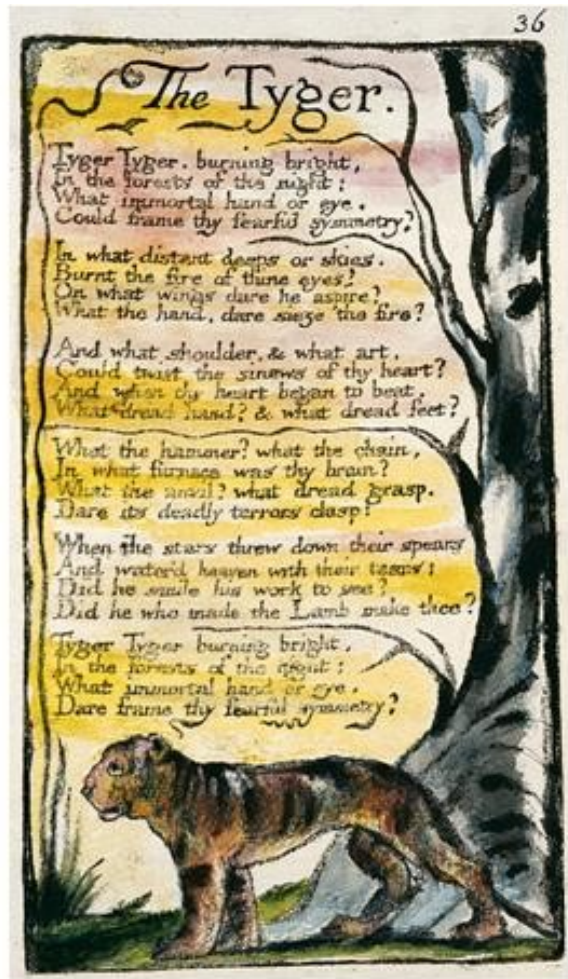 36
The Tyger.
Tyger Tyger. burning bright,
In the forests of the night:
What immortal hand or eye.
Could frame thy fearful symmetry?
In what distant deeps or skies.
Burnt the fire of thine eyes?
On what wings dare he aspire?
What the hand, dare sieze the fire?
And what shoulder, & what art,
Could twist the sinews of thy heart?
And when thy heart began to beat,
What dread hand? & what dread feet?
What the hammer? what the chain,
In what furnace was thy brain?
What the anvil? what dread grasp.
Dare its deadly terrors clasp!
When the stars threw down their spears
And water'd heaven with their tears:
Did he smile his work to see?
Did he who made the Lamb make thee?
Tyger Tyger burning bright,
In the forests of the night:
What immortal hand or eye.
Dare frame thy fearful symmetry?